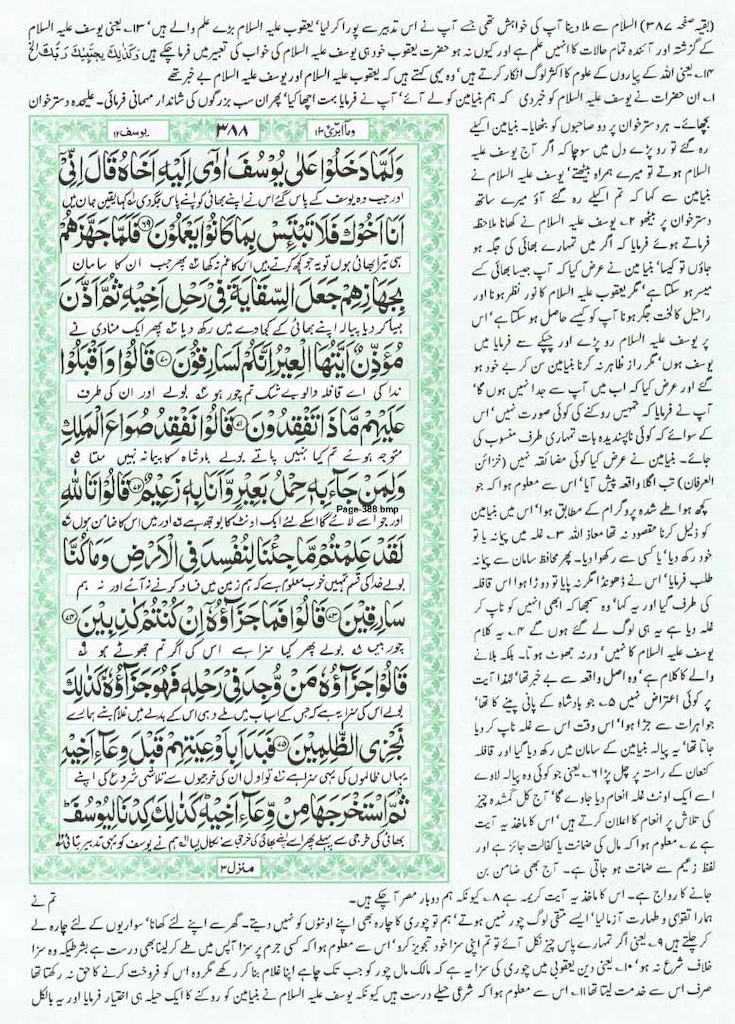 (بقیہ صفحہ ۳۸۷) السلام سے ملا دینا آپ کی خواہش تھی جسے آپ نے اس تدبیر سے پورا کر لیا' یعقوب علیہ السلام بڑے علم والے ہیں' ۱۳۔ یعنی یوسف علیہ السلام
کے گزشتہ اور آئندہ تمام حالات کا انہیں علم ہے اور کیوں نہ ہو حضرت یعقوب خود ہی یوسف علیہ السلام کی خواب کی تعبیر میں فرما چکے ہیں وَكَذٰلِكَ يَجْتَبِيْكَ رَبُّكَ الخ
۱۴۔ یعنی اللہ کے پیاروں کے علوم کا اکثر لوگ انکار کرتے ہیں' وہ یہی کہتے ہیں کہ یعقوب علیہ السلام اور یوسف علیہ السلام بے خبر تھے
۱۔ ان حضرات نے یوسف علیہ السلام کو خبر دی کہ ہم بنیامین کو لے آئے' آپ نے فرمایا بہت اچھا کیا' پھر ان سب بزرگوں کی شاندار مہمانی فرمائی۔ علیحدہ دسترخوان
وما ابرئ ۱۳
۳۸۸
یوسف ۱۲
وَلَمَّا دَخَلُوْا عَلٰى يُوْسُفَ اٰوٰٓى اِلَيْهِ اَخَاهُ قَالَ اِنِّيْٓ
اور جب وہ یوسف کے پاس گئے اس نے اپنے بھائی کو اپنے پاس جگہ دی کہا یقین جان میں
اَنَا اَخُوْكَ فَلَا تَبْتَىِٕسْ بِمَا كَانُوْا يَعْمَلُوْنَ ۶۹ فَلَمَّا جَهَّزَهُمْ
ہی تیرا بھائی ہوں تو یہ جو کچھ کرتے ہیں اس کا غم نہ کھا پھر جب ان کا سامان
بِجَهَازِهِمْ جَعَلَ السِّقَايَةَ فِيْ رَحْلِ اَخِيْهِ ثُمَّ اَذَّنَ
مہیا کر دیا پیالہ اپنے بھائی کے کجاوے میں رکھ دیا پھر ایک منادی نے
مُؤَذِّنٌ اَيَّتُهَا الْعِيْرُ اِنَّكُمْ لَسٰرِقُوْنَ ۷۰ قَالُوْا وَاَقْبَلُوْا
ندا کی اے قافلہ والو بے شک تم چور ہو بولے اور ان کی طرف
عَلَيْهِمْ مَّاذَا تَفْقِدُوْنَ ۷۱ قَالُوْا نَفْقِدُ صُوَاعَ الْمَلِكِ
متوجہ ہوئے تم کیا نہیں پاتے بولے بادشاہ کا پیمانہ نہیں ملتا
وَلِمَنْ جَآءَ بِهٖ حِمْلُ بَعِيْرٍ وَّاَنَا بِهٖ زَعِيْمٌ ۷۲ قَالُوْا تَاللّٰهِ
اور جو اسے لائے گا اس کے لئے ایک اونٹ کا بوجھ ہے اور میں اس کا ضامن ہوں
Page-388.bmp
لَقَدْ عَلِمْتُمْ مَّا جِئْنَا لِنُفْسِدَ فِي الْاَرْضِ وَمَا كُنَّا
بولے خدا کی قسم تمہیں خوب معلوم ہے کہ ہم زمین میں فساد کرنے نہ آئے اور نہ ہم
سٰرِقِيْنَ ۷۳ قَالُوْا فَمَا جَزَآؤُهٗٓ اِنْ كُنْتُمْ كٰذِبِيْنَ ۷۴
چور ہیں بولے پھر کیا سزا ہے اس کی اگر تم جھوٹے ہو
قَالُوْا جَزَآؤُهٗ مَنْ وُّجِدَ فِيْ رَحْلِهٖ فَهُوَ جَزَآؤُهٗ كَذٰلِكَ
بولے اس کی سزا یہ ہے کہ جس کے اسباب میں ملے وہی اس کے بدلے میں غلام بنے ہمارے
نَجْزِي الظّٰلِمِيْنَ ۷۵ فَبَدَاَ بِاَوْعِيَتِهِمْ قَبْلَ وِعَآءِ اَخِيْهِ
یہاں ظالموں کی یہی سزا ہے تو اول ان کی خرجیوں سے تلاشی شروع کی اپنے
ثُمَّ اسْتَخْرَجَهَا مِنْ وِّعَآءِ اَخِيْهِ كَذٰلِكَ كِدْنَا لِيُوْسُفَ
بھائی کی خرجی سے پہلے پھر اسے اپنے بھائی کی خرجی سے نکال لیا ہم نے یوسف کو یہی تدبیر بتائی
منزل ۳
بچھائے۔ ہر دسترخوان پر دو صاحبوں کو بٹھایا۔ بنیامین اکیلے
رہ گئے تو رو پڑے دل میں سوچا کہ اگر آج یوسف علیہ
السلام ہوتے تو میرے ہمراہ بیٹھتے' یوسف علیہ السلام نے
بنیامین سے کہا کہ تم اکیلے رہ گئے آؤ میرے ساتھ
دسترخوان پر بیٹھو ۲۔ یوسف علیہ السلام نے کھانا ملاحظہ
فرماتے ہوئے فرمایا کہ اگر میں تمہارے بھائی کی جگہ ہو
جاؤں تو کیسا' بنیامین نے عرض کیا کہ آپ جیسا بھائی کسے
میسر ہو سکتا ہے' مگر یعقوب علیہ السلام کا نور نظر ہونا اور
راحیل کا لخت جگر ہونا آپ کو کیسے حاصل ہو سکتا ہے' اس
پر یوسف علیہ السلام رو پڑے اور چپکے سے فرمایا میں
یوسف ہوں' مگر راز ظاہر نہ کرنا بنیامین سن کر بے خود ہو
گئے اور عرض کیا کہ اب میں آپ سے جدا نہیں ہوں گا'
آپ نے فرمایا کہ تمہیں روکنے کی کوئی صورت نہیں' اس
کے سوائے کہ کوئی ناپسندیدہ بات تمہاری طرف منسوب کی
جائے۔ بنیامین نے عرض کیا کوئی مضائقہ نہیں (خزائن
العرفان) تب اگلا واقعہ پیش آیا' اس سے معلوم ہوا کہ جو
کچھ ہوا طے شدہ پروگرام کے مطابق ہوا' اس میں بنیامین
کو ذلیل کرنا مقصود نہ تھا معاذ اللہ ۳۔ غلہ میں پیمانہ یا تو
خود رکھ دیا' یا کسی سے رکھوا دیا۔ پھر محافظ سامان سے پیمانہ
طلب فرمایا' اس نے ڈھونڈا مگر نہ پایا تو دوڑا ہوا اس قافلہ
کی طرف گیا اور یہ کہا' وہ سمجھا کہ ابھی انہیں کو ناپ کر
غلہ دیا ہے یہ ہی لوگ لے گئے ہوں گے ۴۔ یہ کلام
یوسف علیہ السلام کا نہیں' ورنہ جھوٹ ہوتا۔ بلکہ بلانے
والے کا کلام ہے' وہ اصل واقعہ سے بے خبر تھا' لہٰذا آیت
پر کوئی اعتراض نہیں ۵۔ جو بادشاہ کے پانی پینے کا تھا'
جواہرات سے جڑا ہوا' اس وقت اس سے غلہ ناپ کر دیا
جاتا تھا' یہ پیالہ بنیامین کے سامان میں رکھ دیا گیا اور قافلہ
کنعان کے راستہ پر چل پڑا ۶۔ یعنی جو کوئی وہ پیالہ لا دے
اسے ایک اونٹ غلہ انعام دیا جاوے گا' آج کل گمشدہ چیز
کی تلاش پر انعام کا اعلان کرتے ہیں' اس کا ماخذ یہ آیت
ہے ۷۔ معلوم ہوا کہ مال کی ضمانت یا کفالت جائز ہے اور
لفظ زعیم سے ضمانت ہو جاتی ہے۔ آج بھی ضامن بن
جانے کا رواج ہے۔ اس کا ماخذ یہ آیت کریمہ ہے ۸۔ کیونکہ ہم دوبار مصر آ چکے ہیں۔ تم نے
ہمارا تقویٰ و طہارت آزما لیا' ایسے متقی لوگ چور نہیں ہوتے' ہم تو چوری کا چارہ بھی اپنے اونٹوں کو نہیں دیتے۔ گھر سے اپنے لئے کھانا' سواریوں کے لئے چارہ لے
کر چلتے ہیں ۹۔ یعنی اگر تمہارے پاس چیز نکل آئے تو تم اپنی سزا خود تجویز کرو' اس سے معلوم ہوا کہ کسی جرم پر سزا آپس میں طے کر لینا بھی درست ہے بشرطیکہ وہ سزا
خلاف شرع نہ ہو' ۱۰۔ یعنی دین یعقوبی میں چوری کی سزا یہ ہے کہ مالک مال چور کو جب تک چاہے اپنا غلام بنا کر رکھے مگر وہ اس کو فروخت کرنے کا حق نہ رکھتا تھا
صرف اس سے خدمت لیتا تھا ۱۱۔ اس سے معلوم ہوا کہ شرعی حیلے درست ہیں کیونکہ یوسف علیہ السلام نے بنیامین کو روکنے کا ایک حیلہ ہی اختیار فرمایا اور یہ بالکل